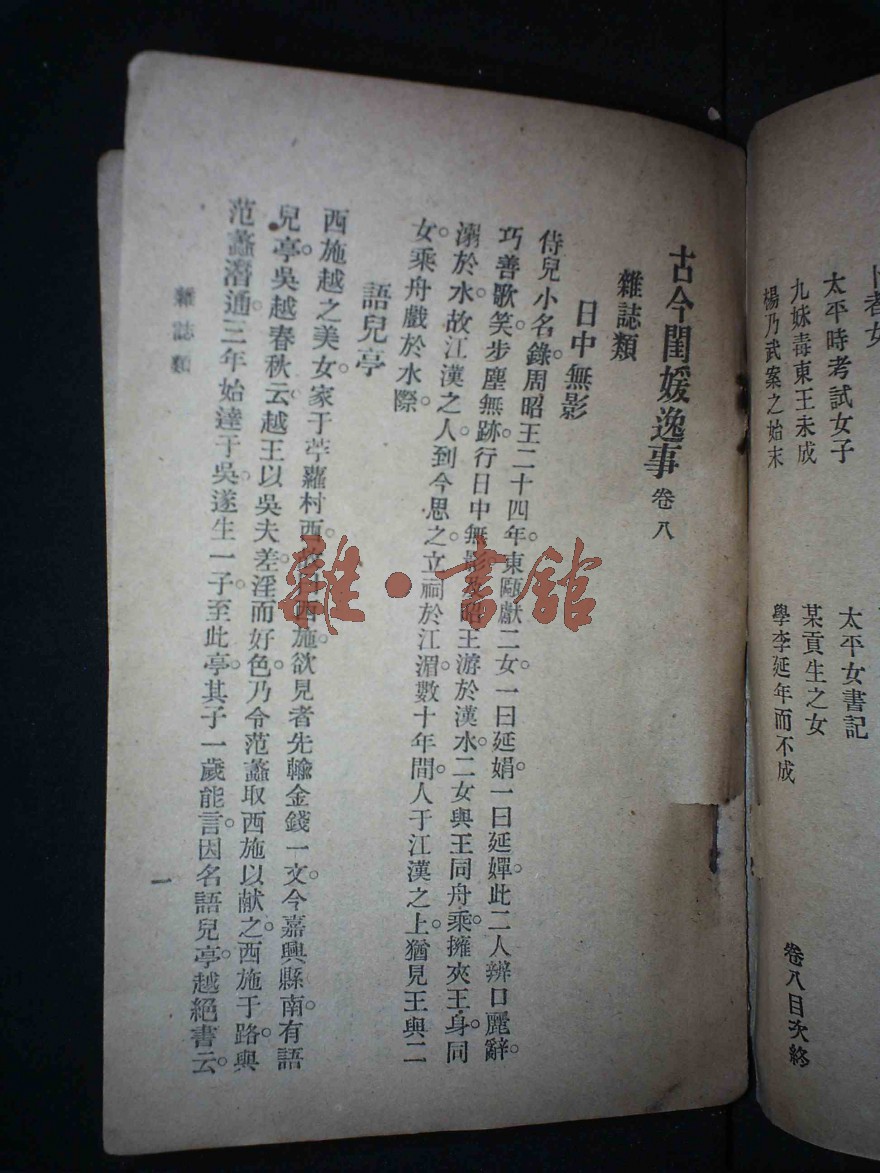 卜者女
太平時考試女子
太平女書記
九妹毒東王未成
某貢生之女
楊乃武案之始末
學李延年而不成
卷八目次終
古今閨媛逸事 卷八
雜誌類
日中無影
侍兒小名錄。周昭王二十四年。東甌獻二女。一曰延娟。一曰延嬋。此二人辨口麗辭。
巧善歌笑。步塵無跡。行日中無影。及昭王游於漢水。二女與王同舟乘。擁夾王身。同
溺於水。故江漢之人。到今思之。立祠於江湄。數十年間。人于江漢之上。猶見王與二
女乘舟戲於水際。
語兒亭
西施越之美女。家于苧蘿村西。故 西施。欲見者先輸金錢一文。今嘉興縣南。有語
兒亭。吳越春秋云。越王以吳夫差淫而好色。乃令范蠡取西施以献之。西施于路與
范蠡潛通。三年始達于吳。遂生一子。至此亭。其子一歲能言。因名語兒亭。越絕書云。
雜誌類
一
雜·書館